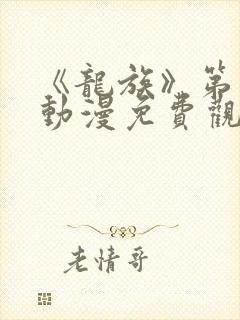 《龍族》第
動漫免費觀
老情哥